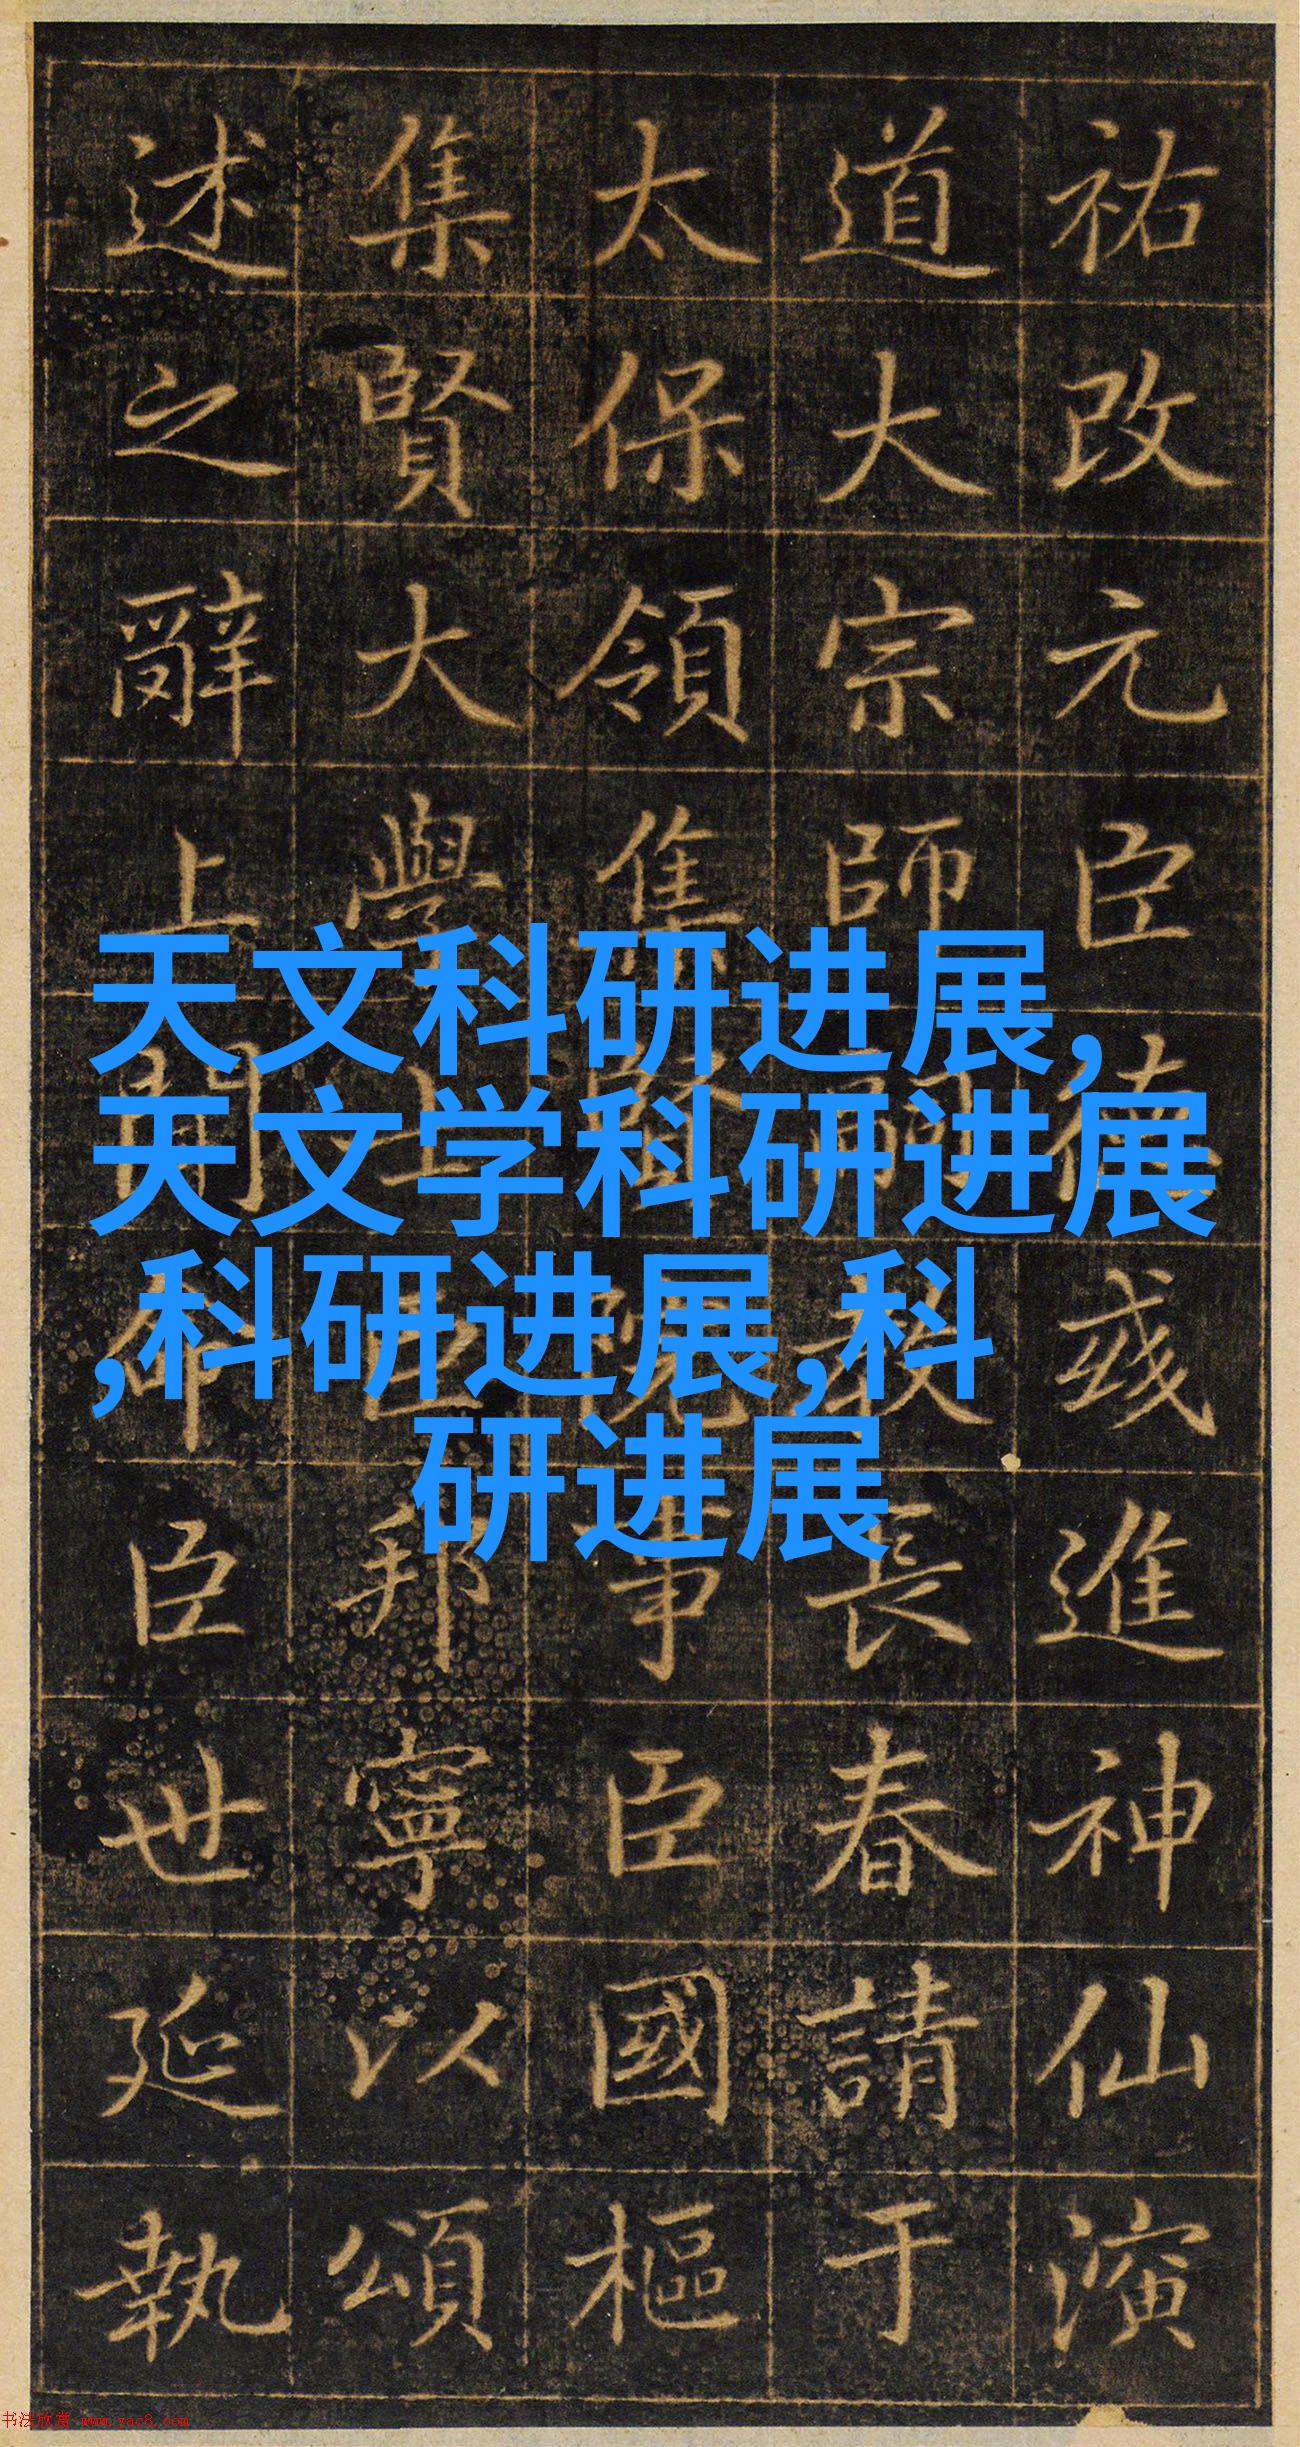 祐改元臣德彧進神仙演
道大宗師嗣教長春請于
太保領集賢院事臣國樞
集賢大學士臣邦寧以頌
述之辭上聞命臣世延執
天文科研进展,
天文学科研进展
,科研进展,科
研进展
书法欣赏 www.yac8.com